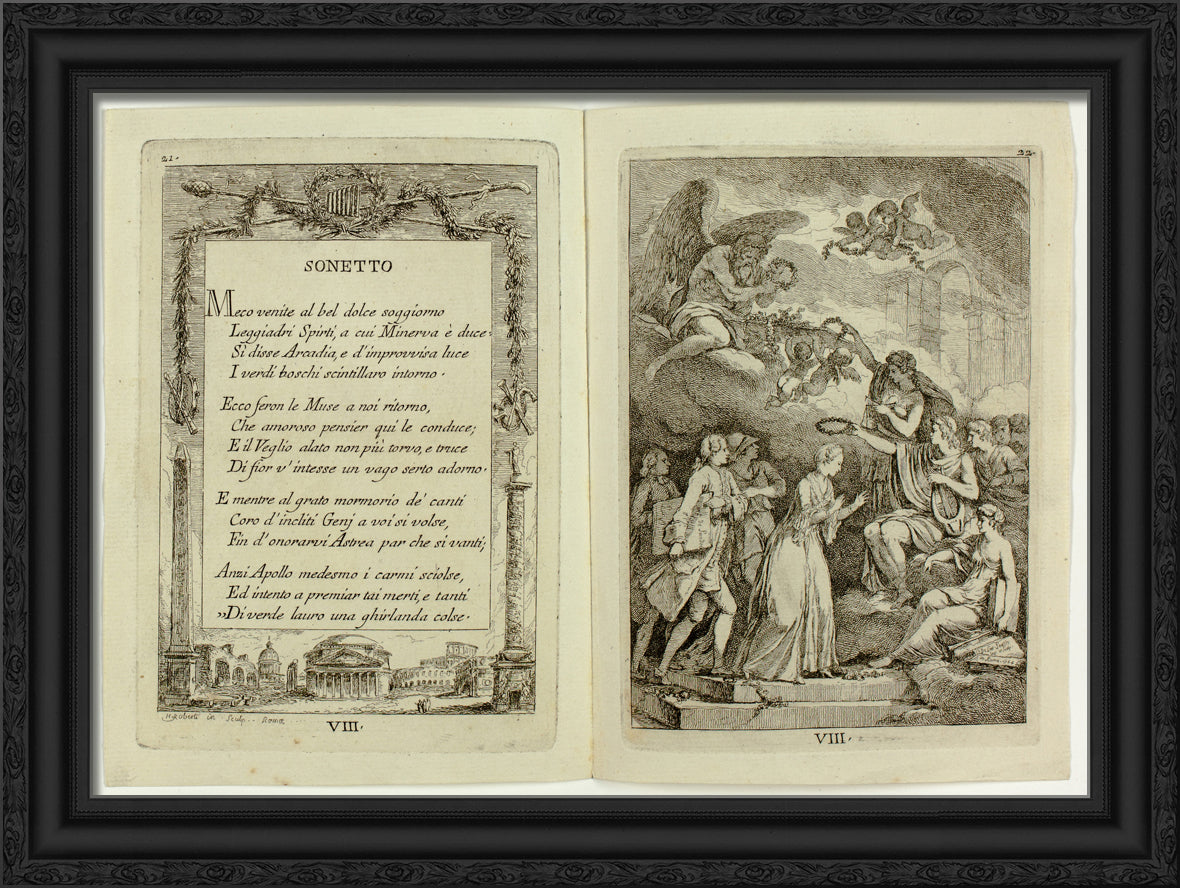 21.
SONETTO
Meco venite al bel dolce soggiorno
Leggiadri Spirti, a cui Minerva è duce:
Sì disse Arcadia, e d'improvvisa luce
I verdi boschi scintillaro intorno.
Ecco feron le Muse a noi ritorno,
Che amoroso pensier quì le conduce;
E il Veglio alato non più torvo, e truce
Di fior v'intesse un vago serto adorno.
E mentre al grato mormorio de' canti
Coro d'incliti Genj a voi si volse,
Fin d'onorarvi Astrea par che si vanti;
Anzi Apollo medesmo i carmi sciolse,
Ed intento a premiar tai merti, e tanti
"Di verde lauro una ghirlanda colse.
H. Roberti in. Sculp. Romæ
VIII.
22.
VIII.